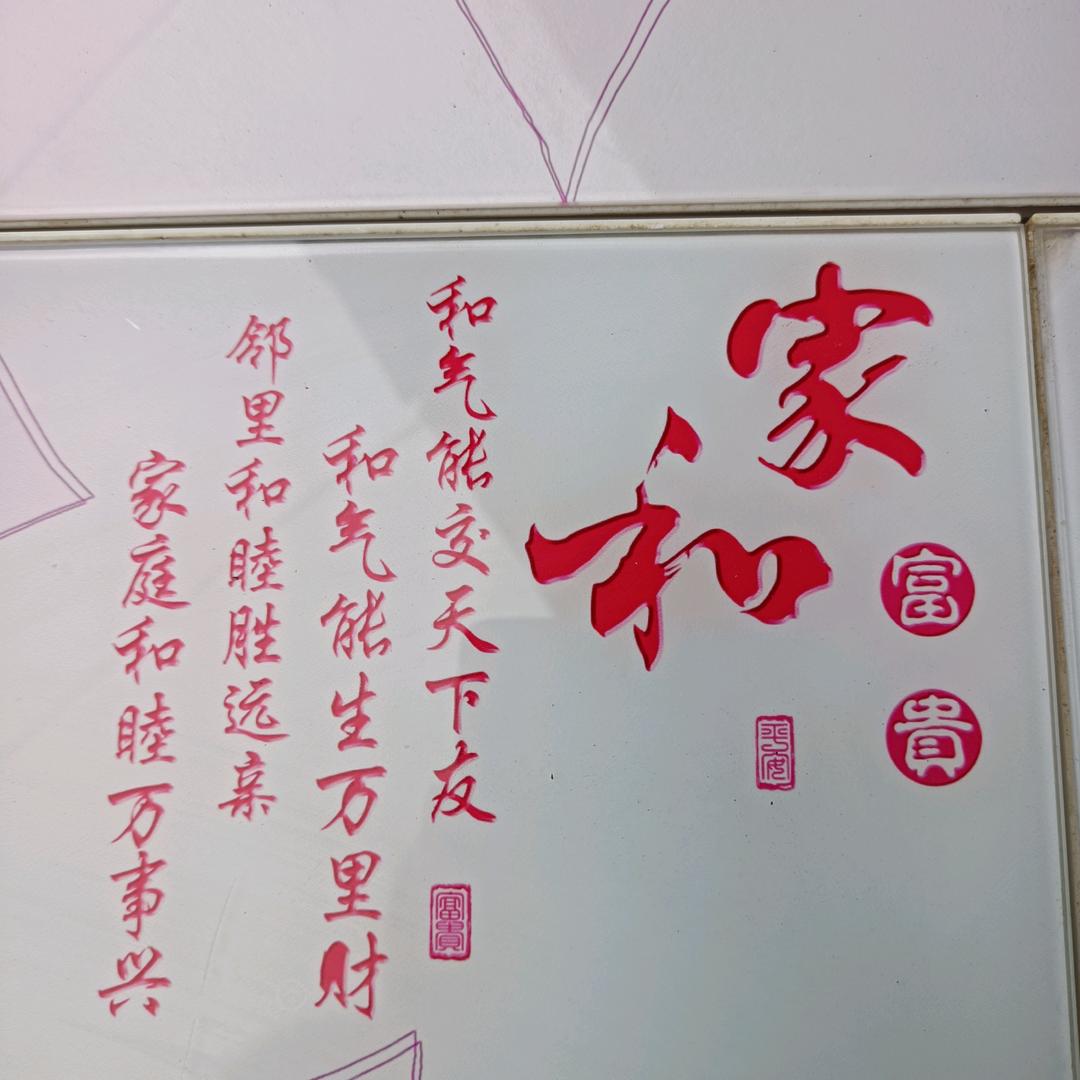 家和
富貴
平安
和气能交天下友
富貴
和气能生万里财
邻里和睦胜远亲
家庭和睦万事兴